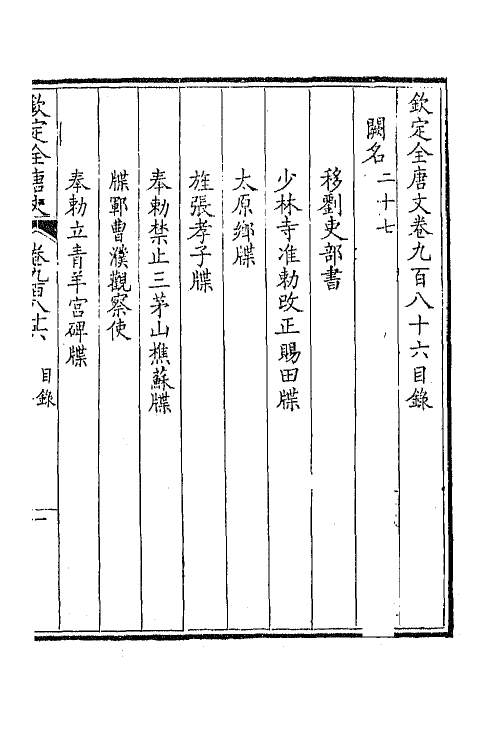 欽定全唐文卷九百八十六目錄
闕名二十七
移劉吏部書
少林寺准勅改正賜田牒
太原鄉牒
旌張孝子牒
奉勅禁止三茅山樵蘇牒
牒鄆曹濮觀察使
奉勅立青羊宮碑牒
欽定全唐文 卷九百八十六 目錄 一